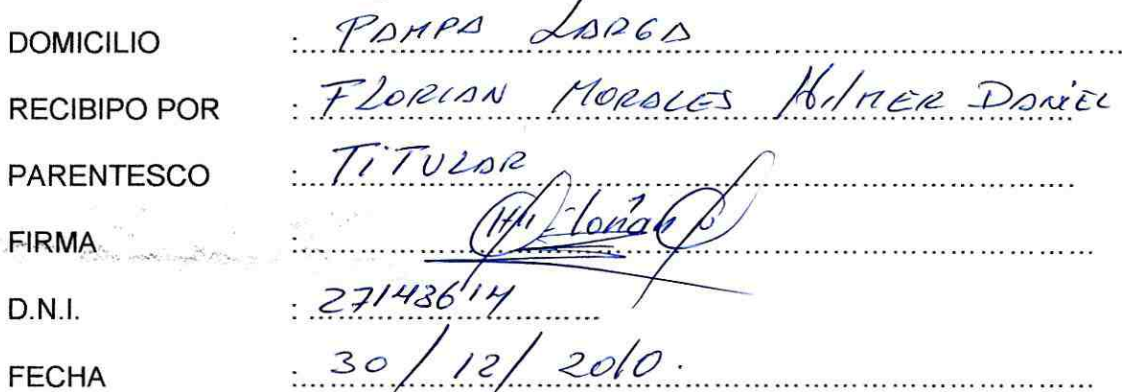 DOMICILIO : PAMPA LARGA
RECIBIPO POR : FLORIAN MORALES Wilmer DANIEL
PARENTESCO : TiTULAR
FIRMA :
D.N.I. : 27143614
FECHA : 30/12/2010.